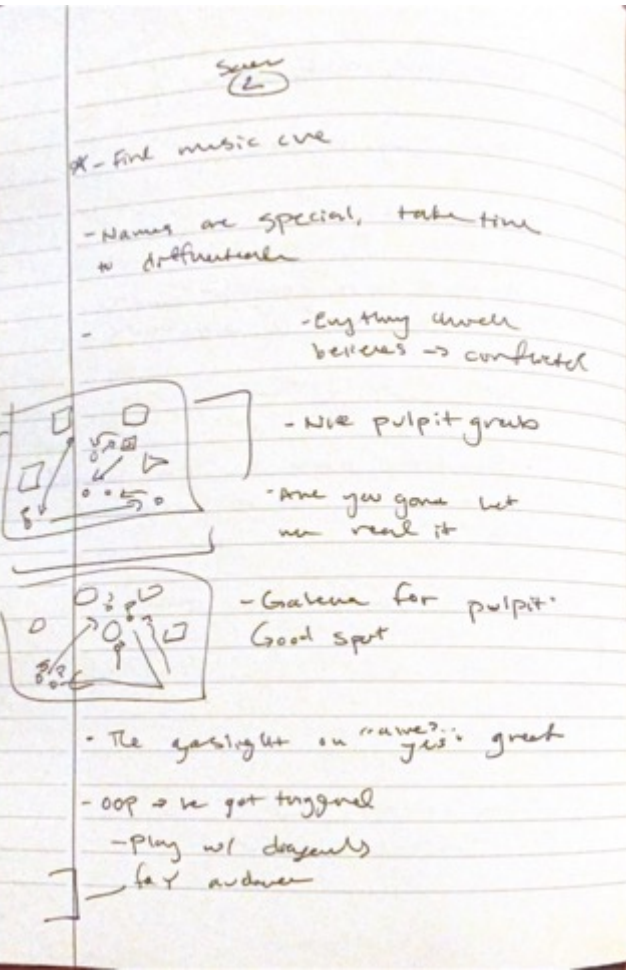 Scene
2
* - Find music cue
- Names are special, take time
to differentiate
-
- Everything church
believes -> conflicted
- Nice pulpit grab
- Are you gonna let
me read it
- Galena for pulpit.
Good spot
- The gaslight on yes. great
- OOP -> he got triggered
- Play w/ diagonals
for audience